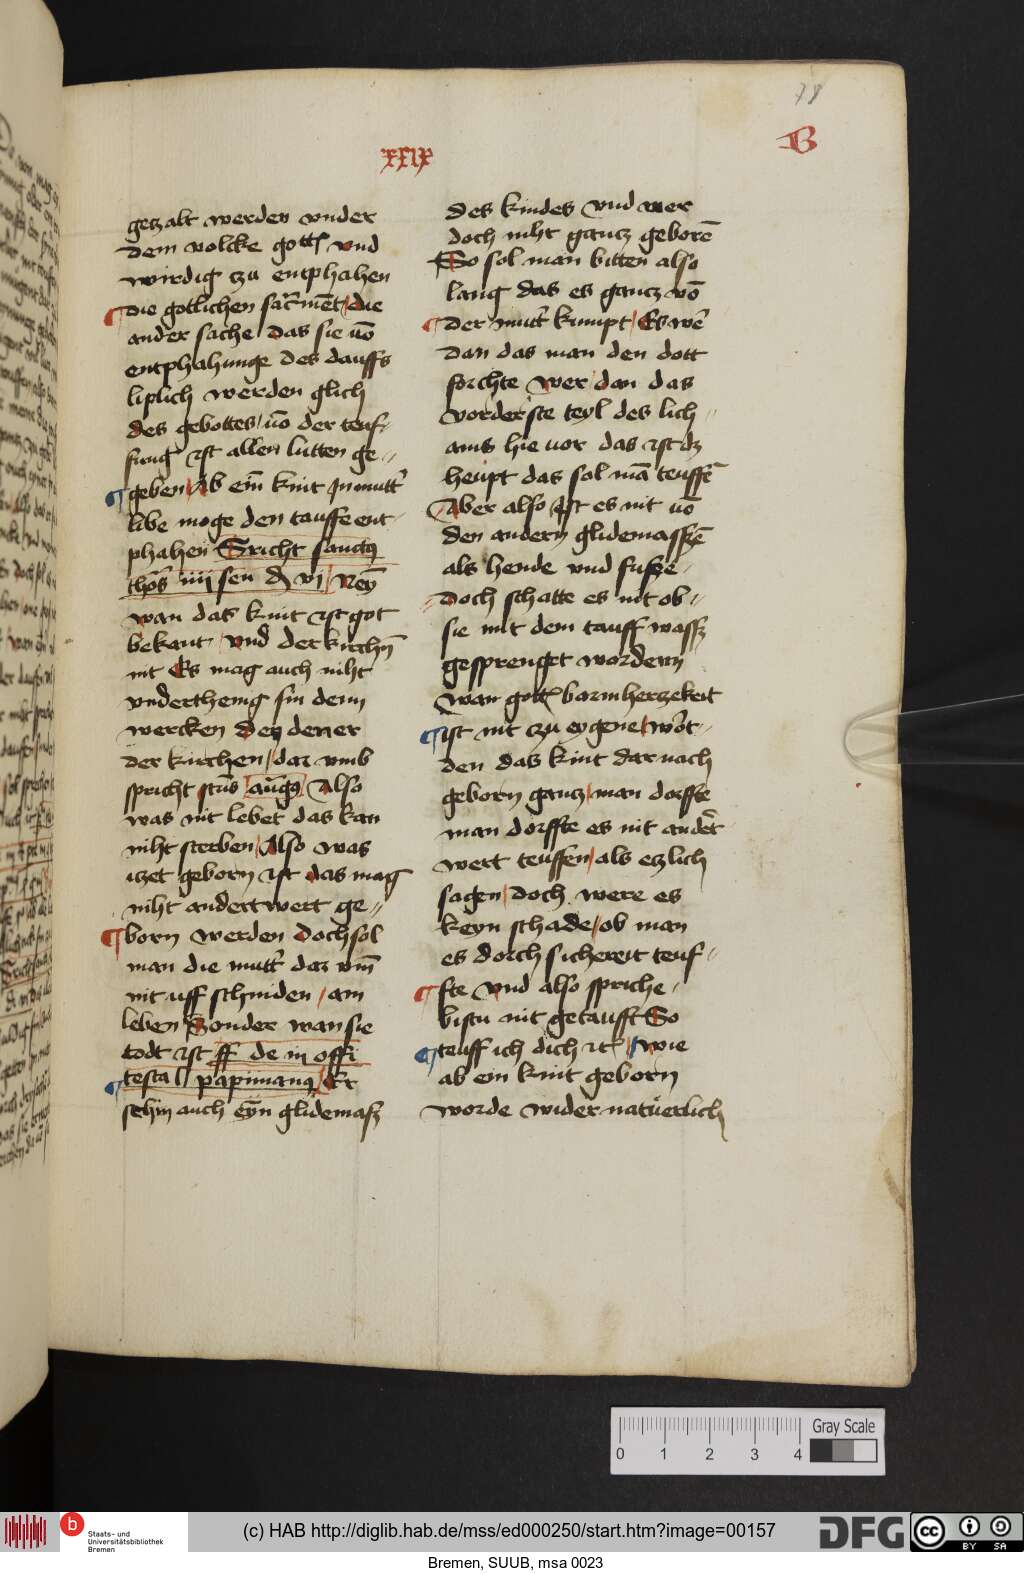 78
B
xxix
getzalt werden vnder
dem volcke gotts vnd
wirdig tzu entphahen
die gotlichen sacrmēt die
ander sache das sie vō
entphahunge des dauffs
liplich werden glich
des gebottes vō der teuf-
fung ist allen lutten ge-
geben Ab eīn kint In mutt'
libe moge den tauffe ent-
phahen Sricht sanctus
thōs iiij sen d vj Neyn
wan das kint ist got
bekant vnd der kirchn
nit Es mag auch niht
vnderthenig sin denn
wercken dey dener
der kirchen dar vmb
spricht stūs aug9 Also
was nit lebet das kan
niht sterben Also was
itzet geborn ist das mag
niht andertwert ge-
born werden doch sol
man die mutt' dar vm̄
nit uff schniden am
leben Sonder wan sie
todt ist ff de in offi
testa l papinian9 Er
schin auch eyn glidemasz
des kindes vnd wer
doch niht gantz geborē
So sol man bitten also
lang das es gantz vō
der mutt' kumpt Es wē
dan das man den dott
forchte wer dan das
vorderste teyl des lich-
ams hie vor das ist dz
heupt das sol mā teuffē
Aber also ist es nit vō
den andern glidemassē
als hende vnd fusze
doch schatte es nit ob-
sie mit dem tauff wassz
gesprenget wordenn
wan gotts barmhertzekeit
ist nit tzu eygene wōr-
den das kint dar nach
geborn gantz man dorffte
man dorffte es nit andēr
wert teuffen als etzlich
sagen doch were es
keyn schade ob man
es dorch sichereit teuf-
fte vnd also spriche
bistu nit getaufft So
teuff ich dich etc wie
ab ein kint geborn
worde wider natuerlich
0 1 2 3 4
Gray Scale
b Staats- und
Universitätsbibliothek
Bremen
(c) HAB http://diglib.hab.de/mss/ed000250/start.htm?image=00157
DFG
cc BY SA
Bremen, SUUB, msa 0023